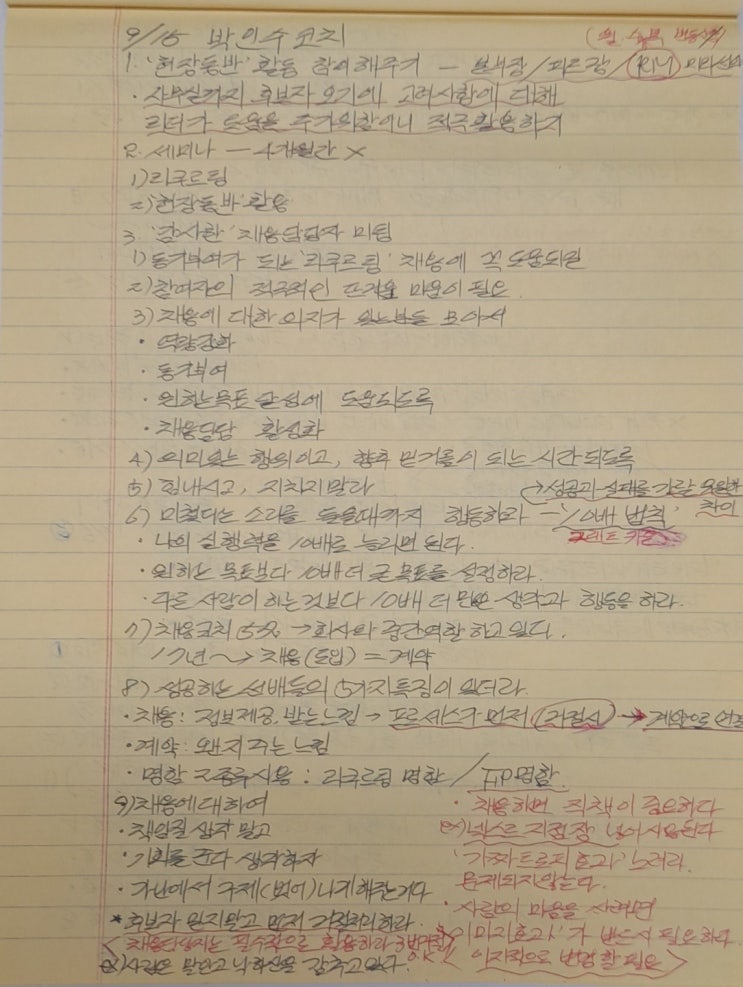 9/15 박인수 코치
1. '현장동반' 활동 참여해주기 — 본부장/파트장/
· 사무실까지 후보자 오기에 고려사항에 대해
리더가 도움을 주기위함이니 적극활용하기
2. 세미나 — 4개월간 X
1) 리크루팅
2) '현장동반' 활용
3. '감사한' 채용담당자 미팅
1) 동기부여가 되는 '리크루팅' 채용에 꼭 도움되길
2) 참여자의 적극적인 뜨거운 마음이 필요.
3) 채용에 대한 의지가 있는분들 모아서
· 역량강화
· 동기부여
· 원하는목표 달성에 도움되도록
· 채용담당 활성화
4) 의미있는 행위이고, 향후 밑거름이 되는 시간 되도록
5) 힘내시고, 지치지말라
→성공과 실패를 가른 유일한 차이
6) 미쳤다는 소리를 들을때까지 행동하라 — '10배 법칙'
그레트 카돈
· 나의 실행력을 10배로 늘리면 된다.
· 원하는 목표보다 10배 더 큰 목표를 설정하라.
· 다른 사람이 하는것보다 10배 더 많은 생각과 행동을 하라.
7) 채용코치 15% → 회사와 중간역할 하고 있다.
17년 ~→ 채용(도입) = 계약
8) 성공하는 선배들의 5가지특징이 있더라.
· 채용: 정보제공, 받는느낌 → 프로세스가 먼저 (거절시) → 계약으로 연결
· 계약: 왠지 주는 느낌
· 명함 2종류사용: 리크루팅 명함 / FP명함
9) 채용에대하여
· 책임질 생각 말고
· 기회를 준다 생각하자
· 가난에서 구제(벗어)나게해주는거다
* 후보자 믿지말고 먼저 거절처리하라.
< 채용담당자는 필수적으로 활용하라
ex) 사람은 말안고 낙하산을 감추고 있다.
· 채용하면 직책이 중요하다
ex) 넥스트 지점장 넣어 사용된다
'가짜트로피효과' 노려라.
문제되지않는다.
· 사람의 마음을 사려면
'이미지효과'가 반드시 필요하다.
< 이지적으로 변명할 필요 >